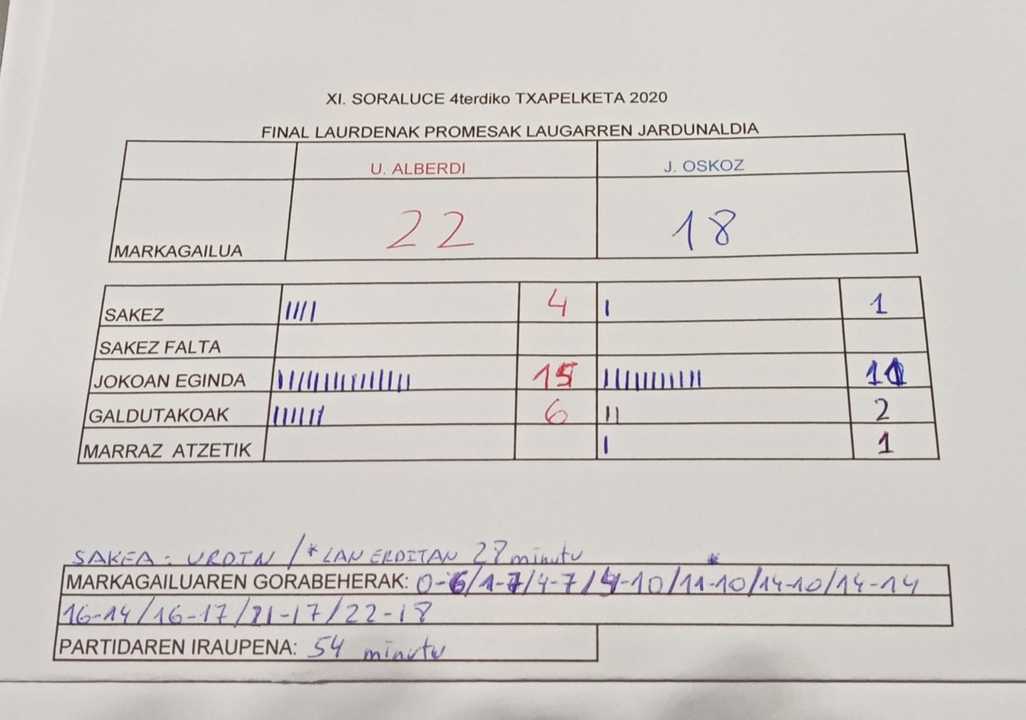 XI. SORALUCE 4terdiko TXAPELKETA 2020
FINAL LAURDENAK PROMESAK LAUGARREN JARDUNALDIA
U. ALBERDI J. OSKOZ
MARKAGAILUA 22 18
SAKEZ 4 1
SAKEZ FALTA
JOKOAN EGINDA 15 11
GALDUTAKOAK 6 2
MARRAZ ATZETIK 1
SAKEA: URDIN /*LAN ERDITAN 27 minutu
MARKAGAILUAREN GORABEHERAK: 0-6/1-7/4-7/4-10/11-10/14-10/14-14
16-14/16-17/21-17/22-18
PARTIDAREN IRAUPENA: 54 minutu